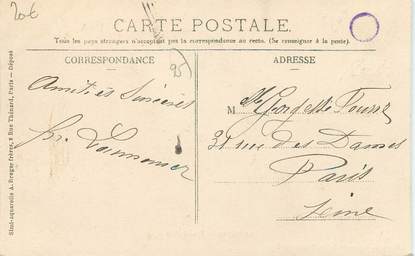 20€
CARTE POSTALE.
Tous les pays étrangers n'acceptent pas la correspondance au recto. (Se renseigner à la poste).
CORRESPONDANCE
ADRESSE
95
Amitiés Sincères
M
31 rue des Dames
Paris
Seine
Simil-aquarelle A. Breger frères, 9 Rue Thénard, Paris — Déposé